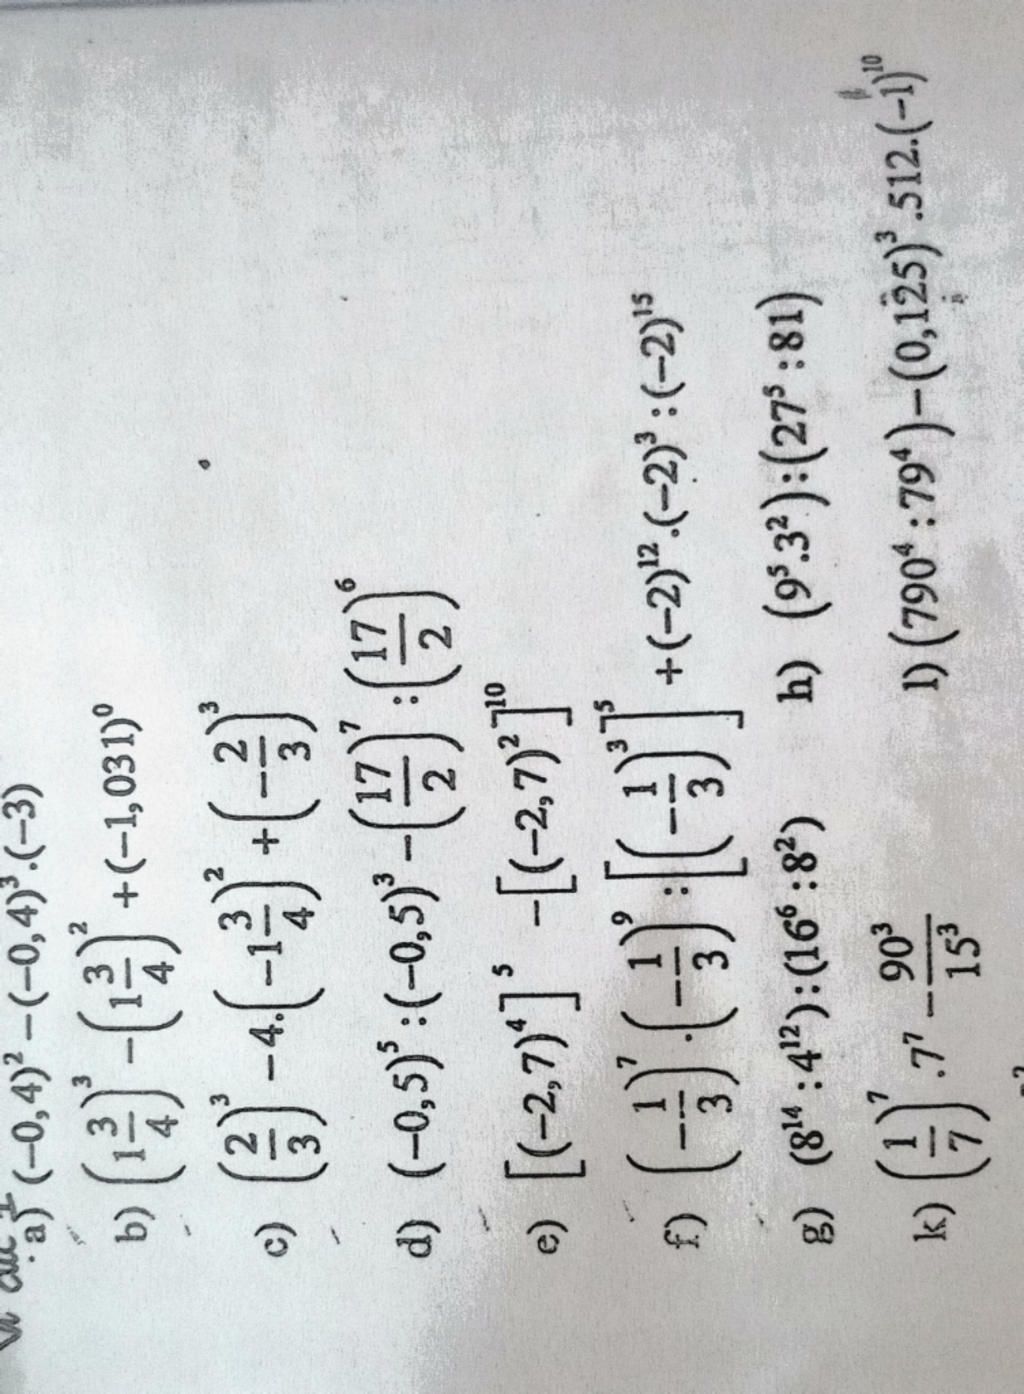 a) (−0,4)² − (−0,4)³.(−3)
b) (1 3/4)³ − (1 3/4)² + (−1,031)⁰
c) (2/3)³ − 4.(−1 3/4)² + (−2/3)³
d) (−0,5)⁵ : (−0,5)³ − (17/2)⁷ : (17/2)⁶
e) [(−2,7)⁴]⁵ − [(−2,7)²]¹⁰
f) (−1/3)⁷.(−1/3)⁹ : [(−1/3)³]⁵ + (−2)¹².(−2)³ : (−2)¹⁵
g) (8¹⁴ : 4¹²) : (16⁶ : 8²) h) (9⁵.3²) : (27⁵ : 81)
k) (1/7)⁷.7⁷ − 90³/15³ l) (790⁴ : 79⁴) − (0,125)³.512.(−1)¹⁰